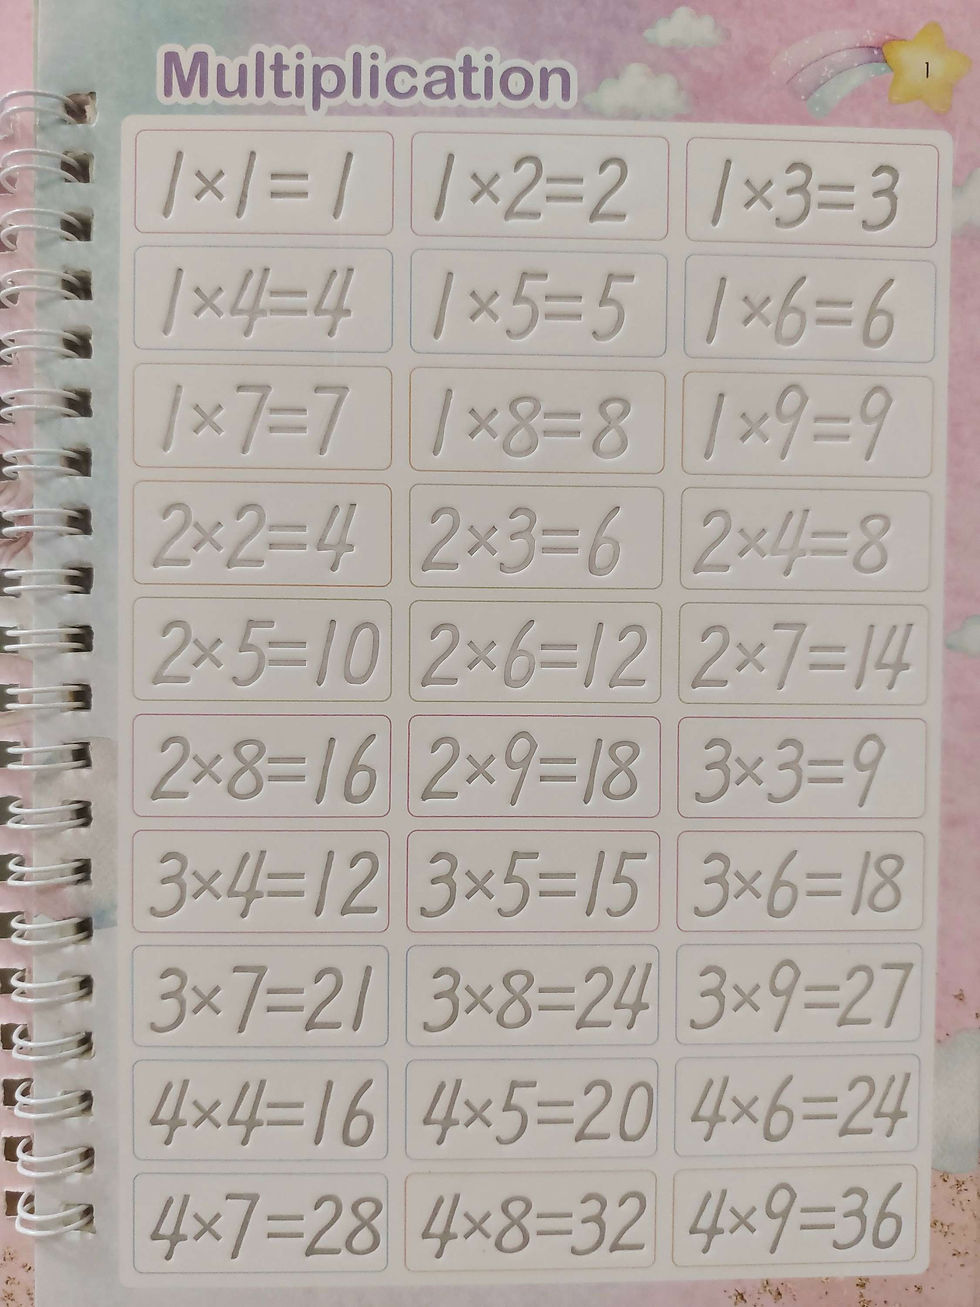 Multiplication
1
1×1=1 1×2=2 1×3=3
1×4=4 1×5=5 1×6=6
1×7=7 1×8=8 1×9=9
2×2=4 2×3=6 2×4=8
2×5=10 2×6=12 2×7=14
2×8=16 2×9=18 3×3=9
3×4=12 3×5=15 3×6=18
3×7=21 3×8=24 3×9=27
4×4=16 4×5=20 4×6=24
4×7=28 4×8=32 4×9=36